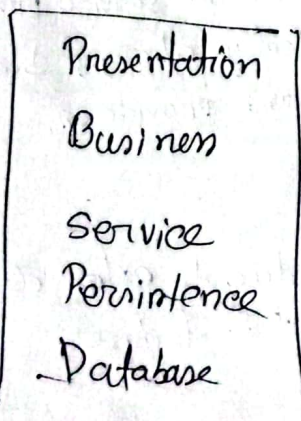 Presentation
Business
Service
Persistence
Database